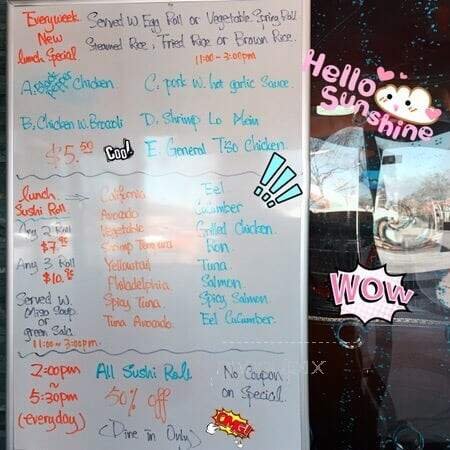 Everyweek
New
lunch Special
Served W Egg Roll or Vegetable Spring Roll
Steamed Rice, Fried Rice or Brown Rice.
11:00 ~ 3:00pm
A. Chicken
C. pork w. hot garlic Sauce.
B. Chicken w. Broccoli
D. Shrimp Lo Mein
$5.50
Cool
E. General Tso Chicken
lunch
Sushi Roll
Any 2 Roll
$7.95
Any 3 Roll
$10.95
Served W.
Miso Soup
or
Green Sala
11:00 ~ 3:00pm.
California
Avocado
Vegetable
Shrimp Tempura
Yellowtail
Philadelphia
Spicy Tuna
Tuna Avocado.
Eel
Cucumber
Grilled Chicken.
Tuna.
Salmon.
Spicy Salmon.
Eel Cucumber.
2:00pm
~
5:30pm
(everyday)
All Sushi Roll
50% off
(Dine in Only)
No Coupon
on Special.
OMG!
Hello
Sunshine
!!!
WOW